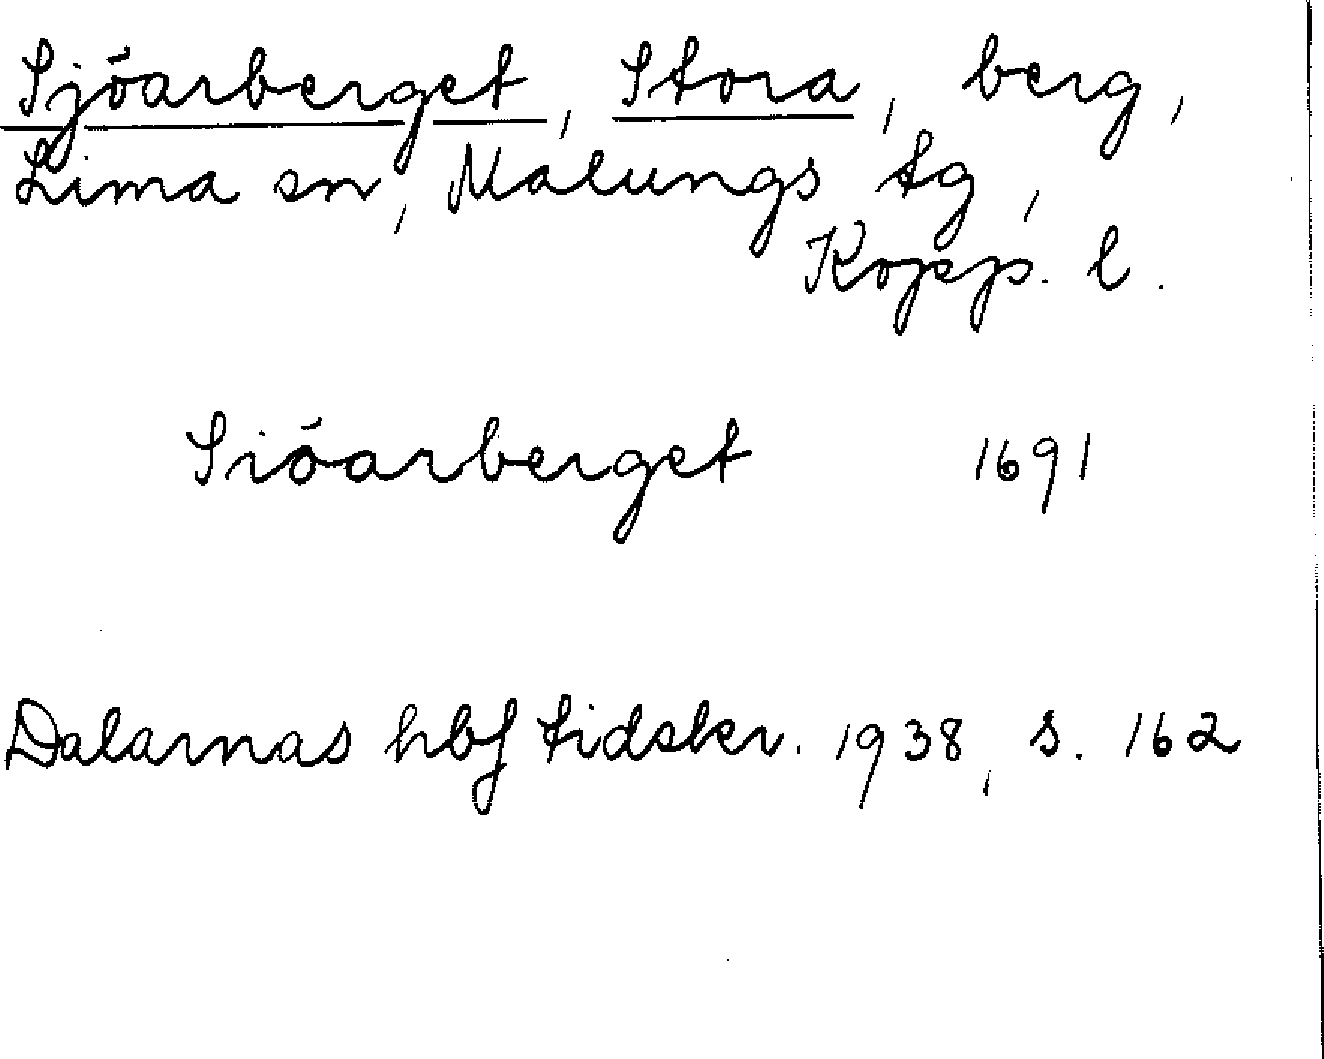 Sjöarberget, Stora, berg,
Lima sn, Malungs tg,
Kopp. l.
Siöarberget 1691
Dalarnas hbf tidskr. 1938, s. 162